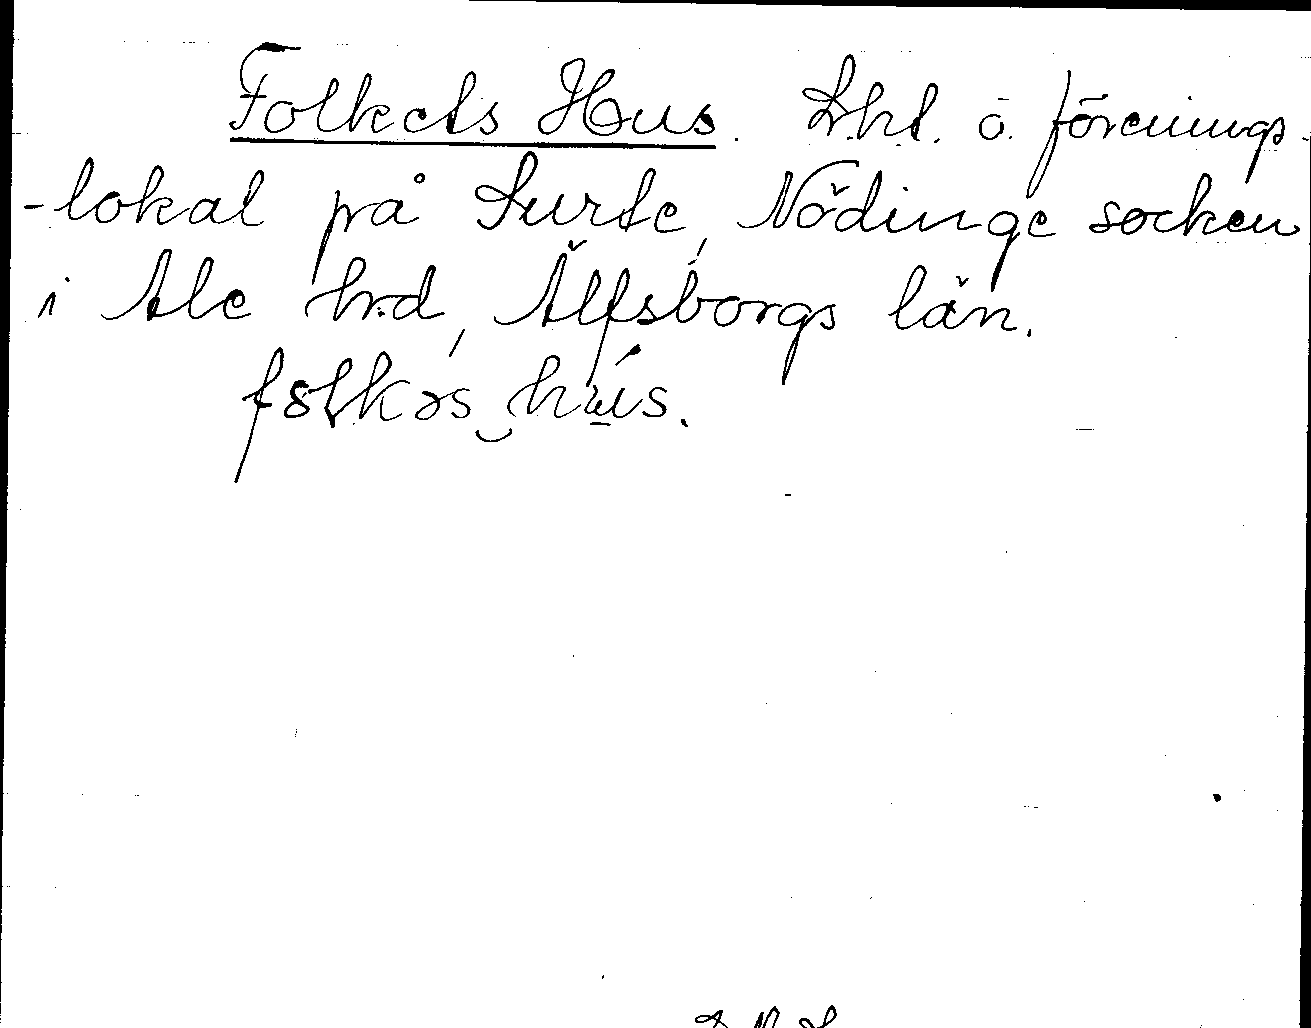 Folkets Hus. Lht. o. förenings-
-lokal på Surte, Nödinge socken
i Ale hrd, Älfsborgs län.
fɔlkəs‿hú̱s.